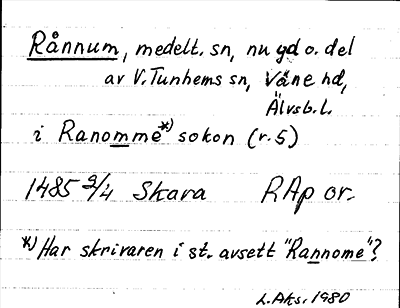 Rånnum, medelt. sn, nu gd o. del
av V. Tunhems sn, Väne hd,
Älvsb. l.
i Ranomme*) sokon (r. 5)
1485 9/4 Skara RAp or.
*) Har skrivaren i st. avsett "Rannome"?
L. Aks. 1980